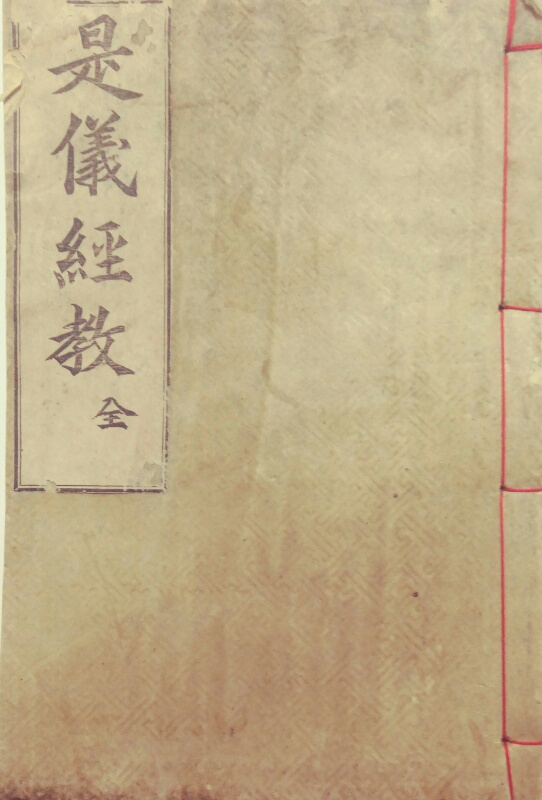 是儀經教 全